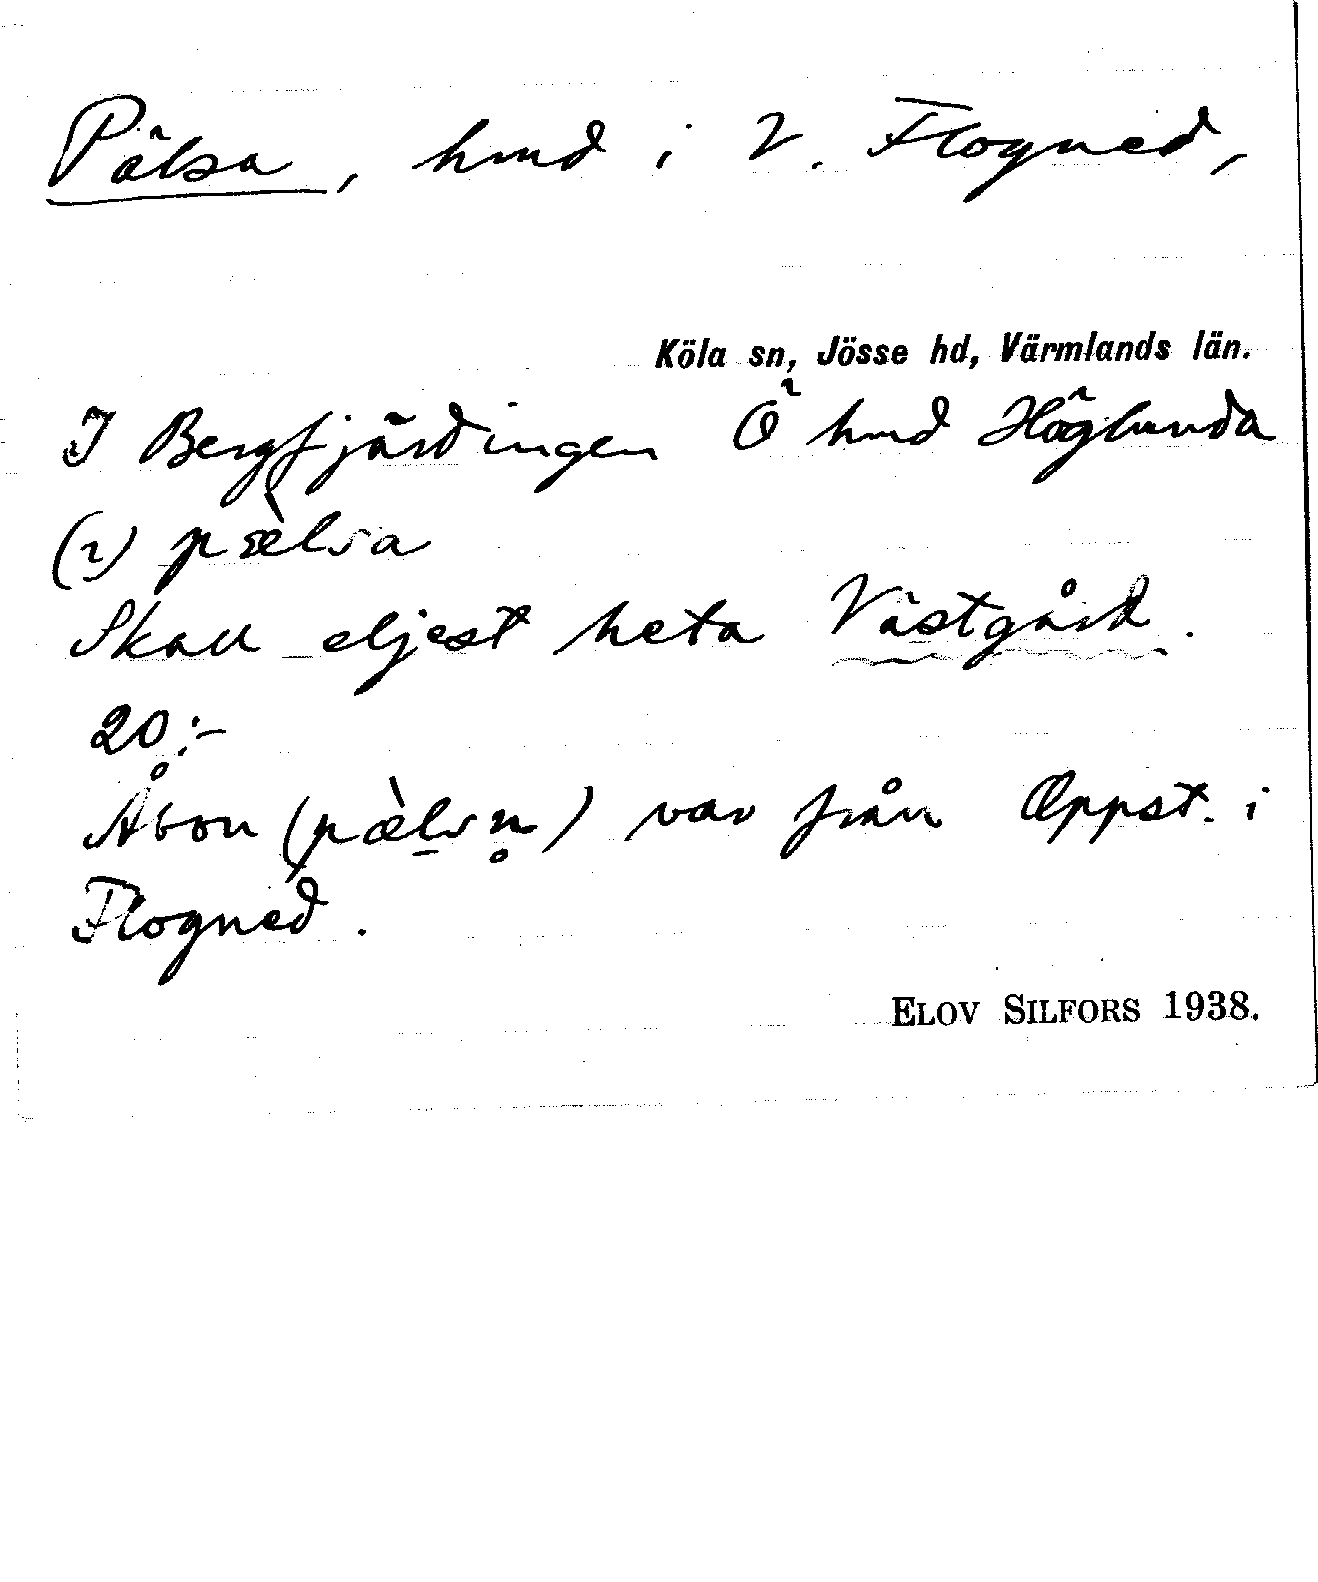 Pälsa, hmd i V. Flogned,
Köla sn, Jösse hd, Värmlands län.
I Bergfjärdingen Ö hmd Höglunda
(2) pæ̀lsa
Skall eljest heta Västgård.
20:-
Åbon (pæ̀lsn̥) var från Öppst. i
Flogned.
ELOV SILFORS 1938.